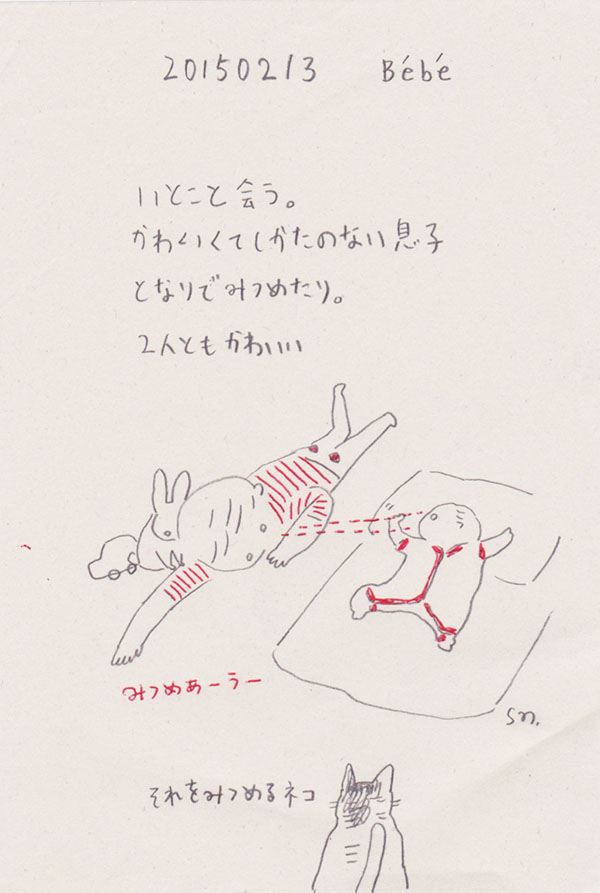 20150213 Bébé
いとこと会う。
かわいくてしかたのない息子
となりでみつめたり。
2人ともかわいい
みつめあーうー
sn.
それをみつめるネコ